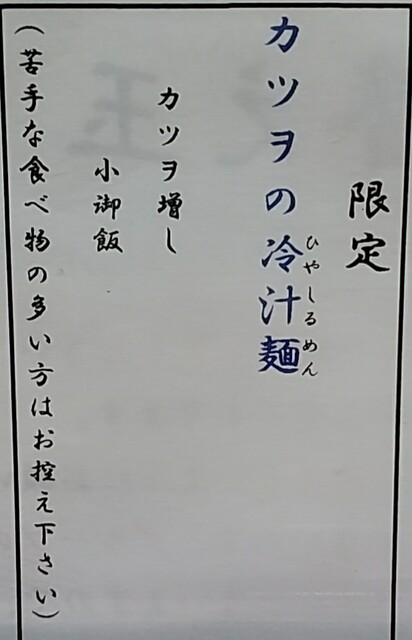 限定
カツヲの冷汁麺
ひやしるめん
カツヲ増し
小御飯
（苦手な食べ物の多い方はお控え下さい）